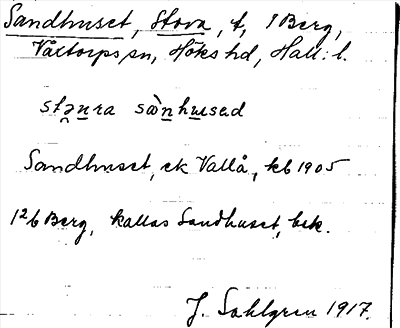 Sandhuset, Stora, t, 1 Berg,
Våxtorps sn, Höks hd, Hall. l.
stəura sànhusəd
Sandhuset, ek Vallå, kb 1905
1 2/6 Berg, kallas Sandhuset, bek.
J. Sahlgren 1917.